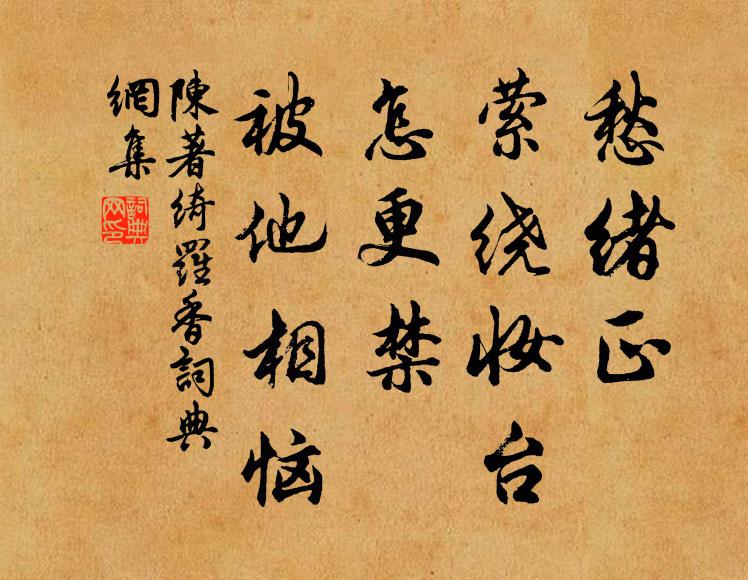 愁绪正
萦绕妆台
怎更禁
被他相恼
陳著绮羅香詞典
網集
詞典
网印